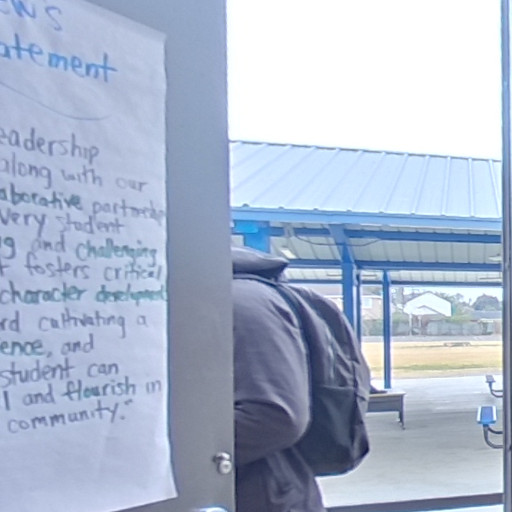 EWS
atement
eadership
along with our
aborative partnership
very student
g and challenging
t fosters critical
character development
rd cultivating a
ence, and
student can
l and flourish in
community."